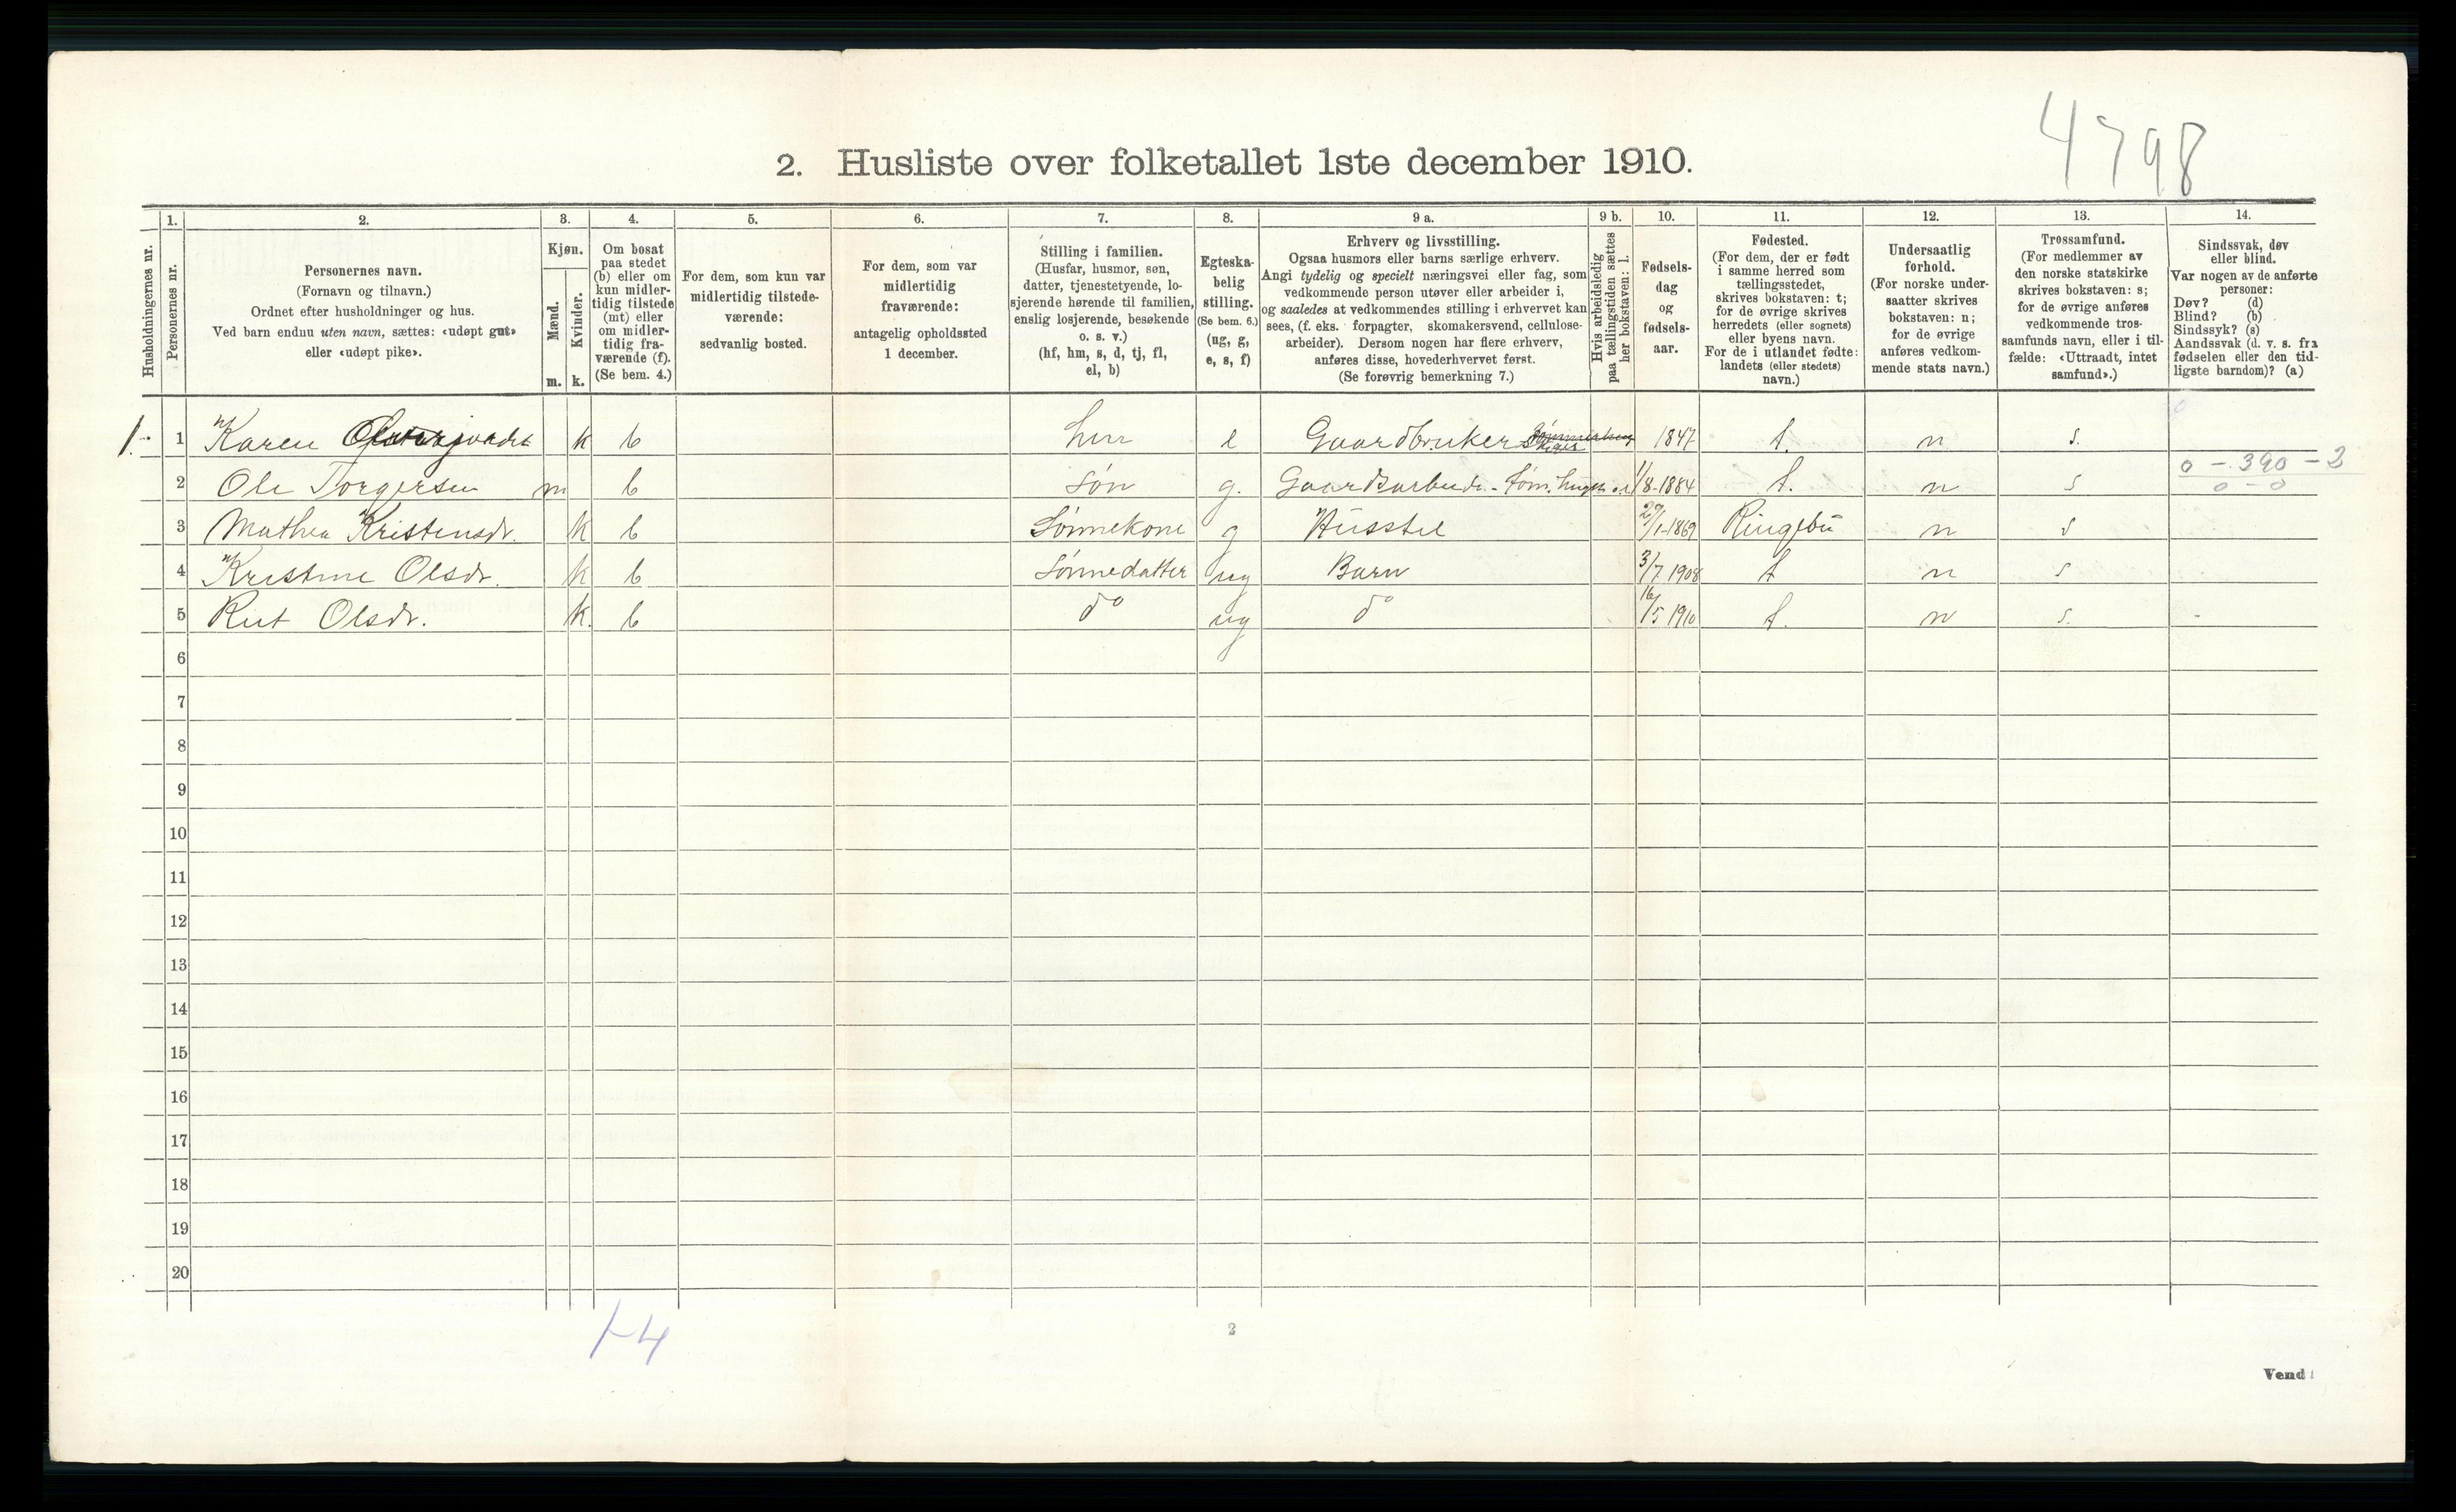 4798
2. Husliste over folketallet 1ste december 1910.
1. 2. 3. 4. 5. 6. 7. 8. 9 a. 9 b. 10. 11. 12. 13. 14.
Husholdningernes nr.
Personernes nr.
Personernes navn.
(Fornavn og tilnavn.)
Ordnet efter husholdninger og hus.
Ved barn endnu uten navn, sættes: «udøpt gut»
eller «udøpt pike».
Kjøn.
Mænd.
Kvinder.
m. k.
Om bosat
paa stedet
(b) eller om
kun midler-
tidig tilstede
(mt) eller
om midler-
tidig fra-
værende (f).
(Se bem. 4.)
For dem, som kun var
midlertidig tilstede-
værende:
sedvanlig bosted.
For dem, som var
midlertidig
fraværende:
antagelig opholdssted
1 december.
Stilling i familien.
(Husfar, husmor, søn,
datter, tjenestetyende, lo-
sjerende hørende til familien,
enslig losjerende, besøkende
o. s. v.)
(hf, hm, s, d, tj, fl,
el, b)
Egteska-
belig
stilling.
(Se bem. 6.)
(ug, g,
e, s, f)
Erhverv og livsstilling.
Ogsaa husmors eller barns særlige erhverv.
Angi tydelig og specielt næringsvei eller fag, som
vedkommende person utøver eller arbeider i,
og saaledes at vedkommendes stilling i erhvervet kan
sees, (f. eks. forpagter, skomakersvend, cellulose-
arbeider). Dersom nogen har flere erhverv,
anføres disse, hovederhvervet først.
(Se forøvrig bemerkning 7.)
Hvis arbeidsledig
paa tællingstiden sættes
her bokstaven: l.
Fødsels-
dag
og
fødsels-
aar.
Fødested.
(For dem, der er født
i samme herred som
tællingsstedet,
skrives bokstaven: t;
for de øvrige skrives
herredets (eller sognets)
eller byens navn.
For de i utlandet fødte:
landets (eller stedets)
navn.)
Undersaatlig
forhold.
(For norske under-
saatter skrives
bokstaven: n;
for de øvrige
anføres vedkom-
mende stats navn.)
Trossamfund.
(For medlemmer av
den norske statskirke
skrives bokstaven: s;
for de øvrige anføres
vedkommende tros-
samfunds navn, eller i til-
fælde: «Uttraadt, intet
samfund».)
Sindssvak, døv
eller blind.
Var nogen av de anførte
personer:
Døv? (d)
Blind? (b)
Sindssyk? (s)
Aandssvak (d. v. s. fra
fødselen eller den tid-
ligste barndom)? (a)
1. 1 Karen k b hm e Gaardbruker 1847 t. n s.
2 Ole Torgersen m b søn g. Gaardsarbeide - Tøm. 1/8-1884 t. n s 0 - 390 - 2
0 - 0
3 Mathea Kristensdr. k b Sønnekone g Husstel 29/1-1869 Ringebu n s
4 Kristine Olsdr. k b Sønnedatter ug Barn 3/7 1908 t n s
5 Rut Olsdr. k. b do ug do 16/5 1910 t. n s.
6
7
8
9
10
11
12
13
14
15
16
17
18
19
20
1-4
2
Vend